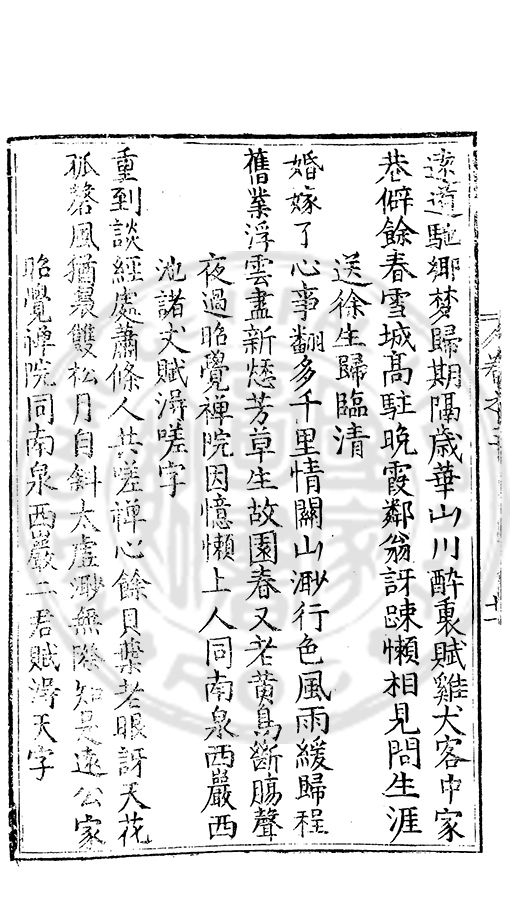 遠道馳鄉梦歸期隔歲華山川醉裏賦雞犬客中家
巷僻餘春雪城髙駐晚霞鄰翁訝踈懶相見問生涯
送徐生歸臨清
婚嫁了心事翻多千里情關山渺行色風雨緩歸程
舊業浮雲盡新愁芳草生故園春又老黄鳥斷腸聲
夜過昭覺禅院因憶懶上人同南泉西巖西
池諸丈賦淂嗟字
重到談經處蕭條人共嗟禅心餘貝葉老眼訝天花
孤磬風猶裊雙松月自斜太虛渺無際知是遠公家
昭覺禅院同南泉西巖二君賦淂天字
卷之